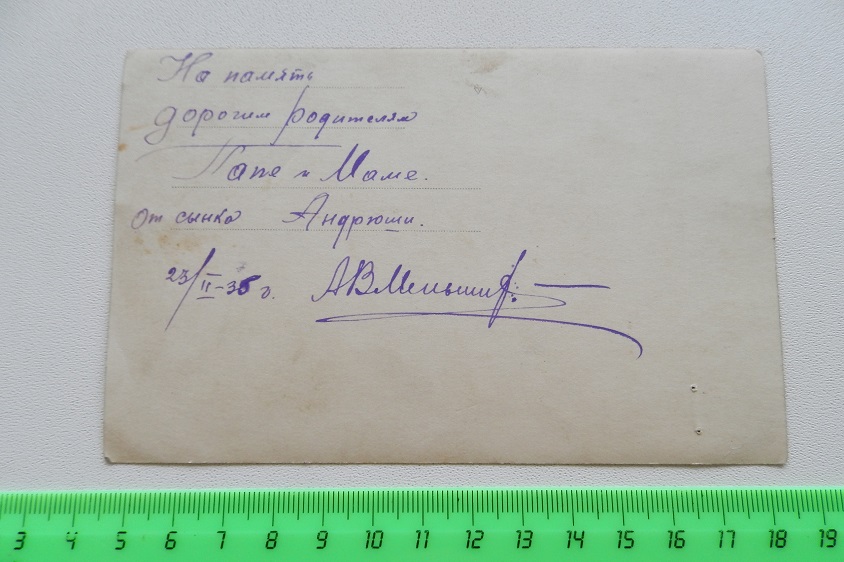 На память
дорогим родителям
Папе и Маме.
От сынка Андрюши.
23/II-35 г. АВМеньши
3 4 5 6 7 8 9 10 11 12 13 14 15 16 17 18 19